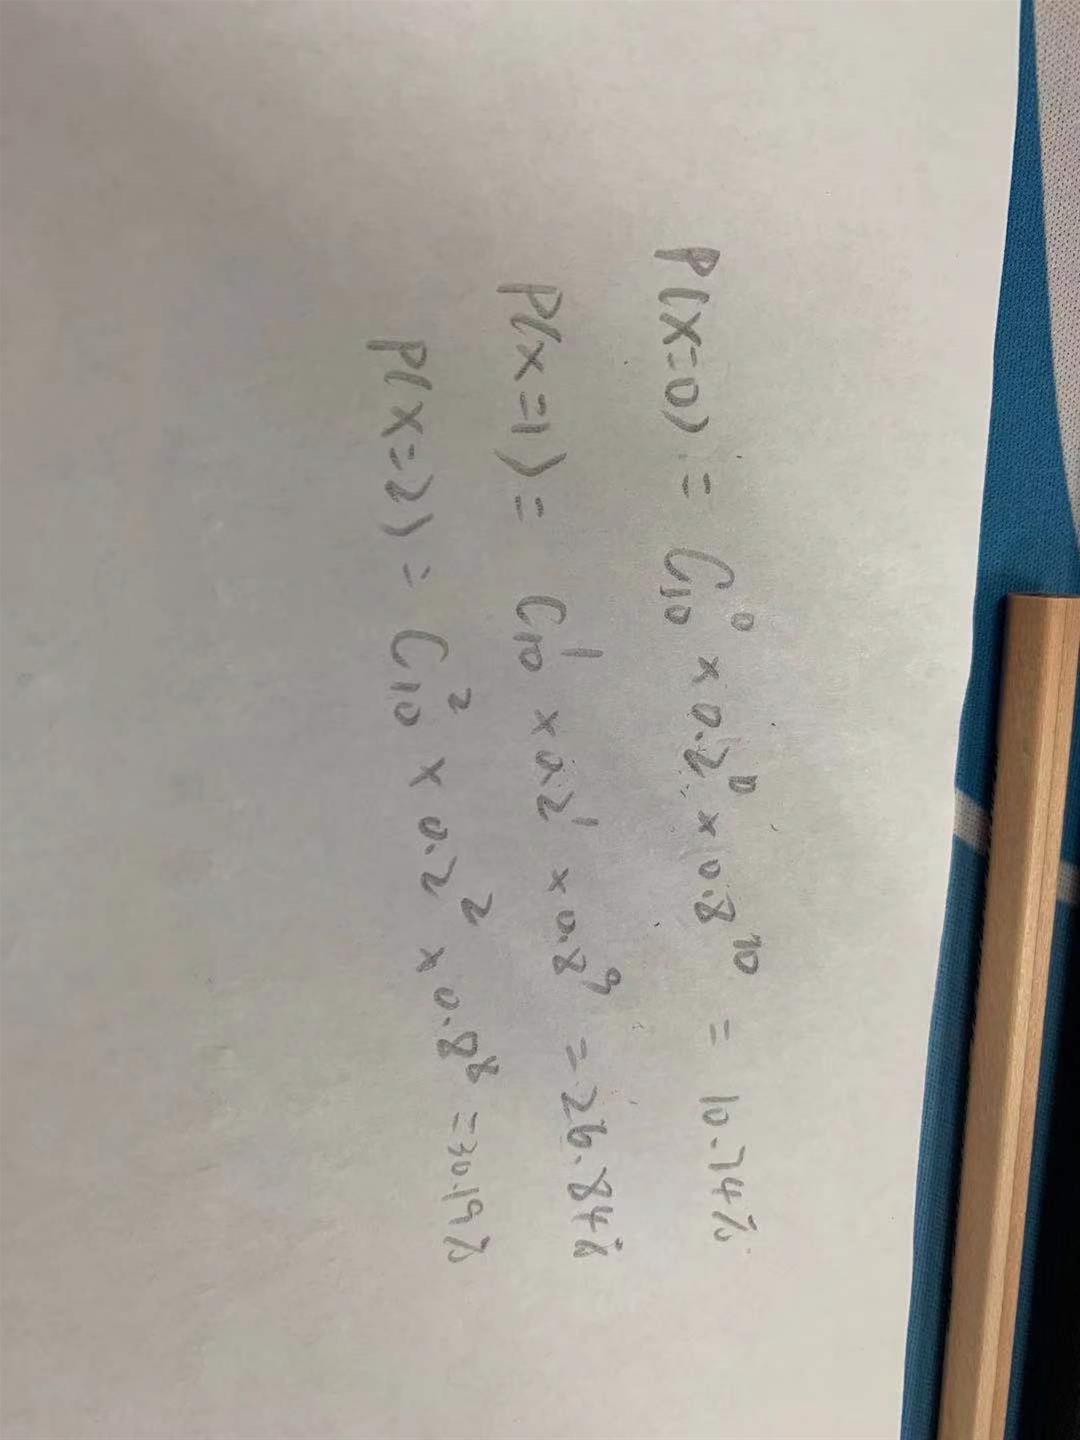 P(X=0) = C₁₀⁰ × 0.2⁰ × 0.8¹⁰ = 10.74%
P(X=1) = C₁₀¹ × 0.2¹ × 0.8⁹ = 26.84%
P(X=2) = C₁₀² × 0.2² × 0.8⁸ = 30.19%